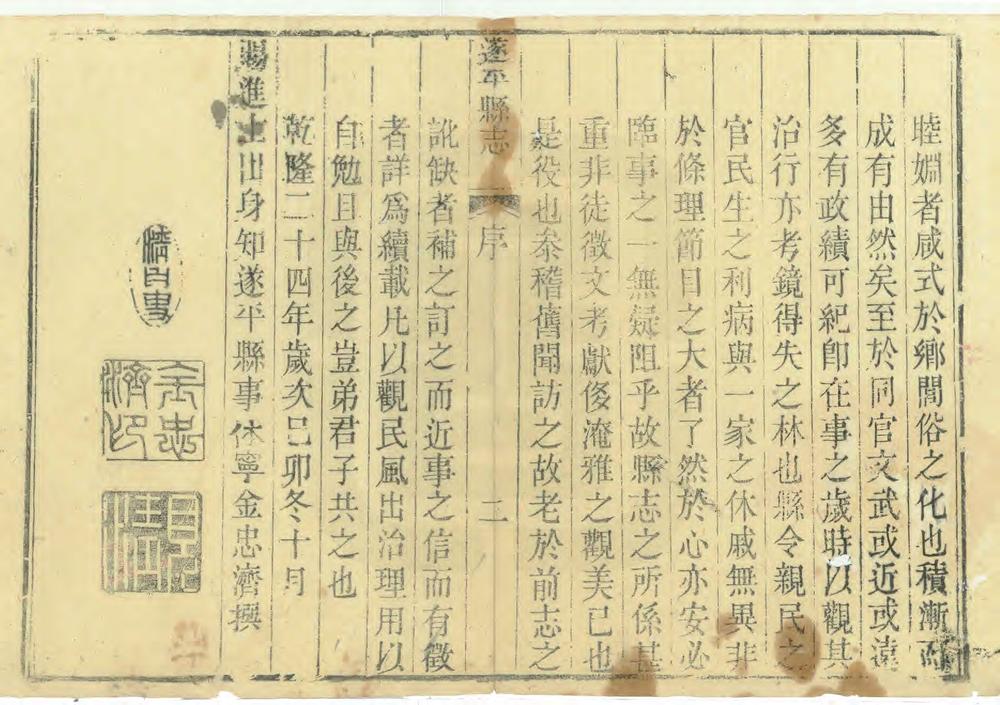 睦婣者咸式於鄉閭俗之化也積漸而
成有由然矣至於同官文武或近或遠
多有政績可紀卽在事之歲時以觀其
治行亦考鏡得失之林也縣令親民之
官民生之利病與一家之休戚無異非
於條理節目之大者了然於心亦安必
臨事之一無疑阻乎故縣志之所係甚
重非徒徵文考獻俊淹雅之觀美已也
是役也叅稽舊聞訪之故老於前志之
遂平縣志 序 二
訛缺者補之訂之而近事之信而有徵
者詳爲續載凡以觀民風出治理用以
自勉且與後之豈弟君子共之也
乾隆二十四年歲次己卯冬十月
賜進士出身知遂平縣事休寧金忠濟撰
金忠
濟印